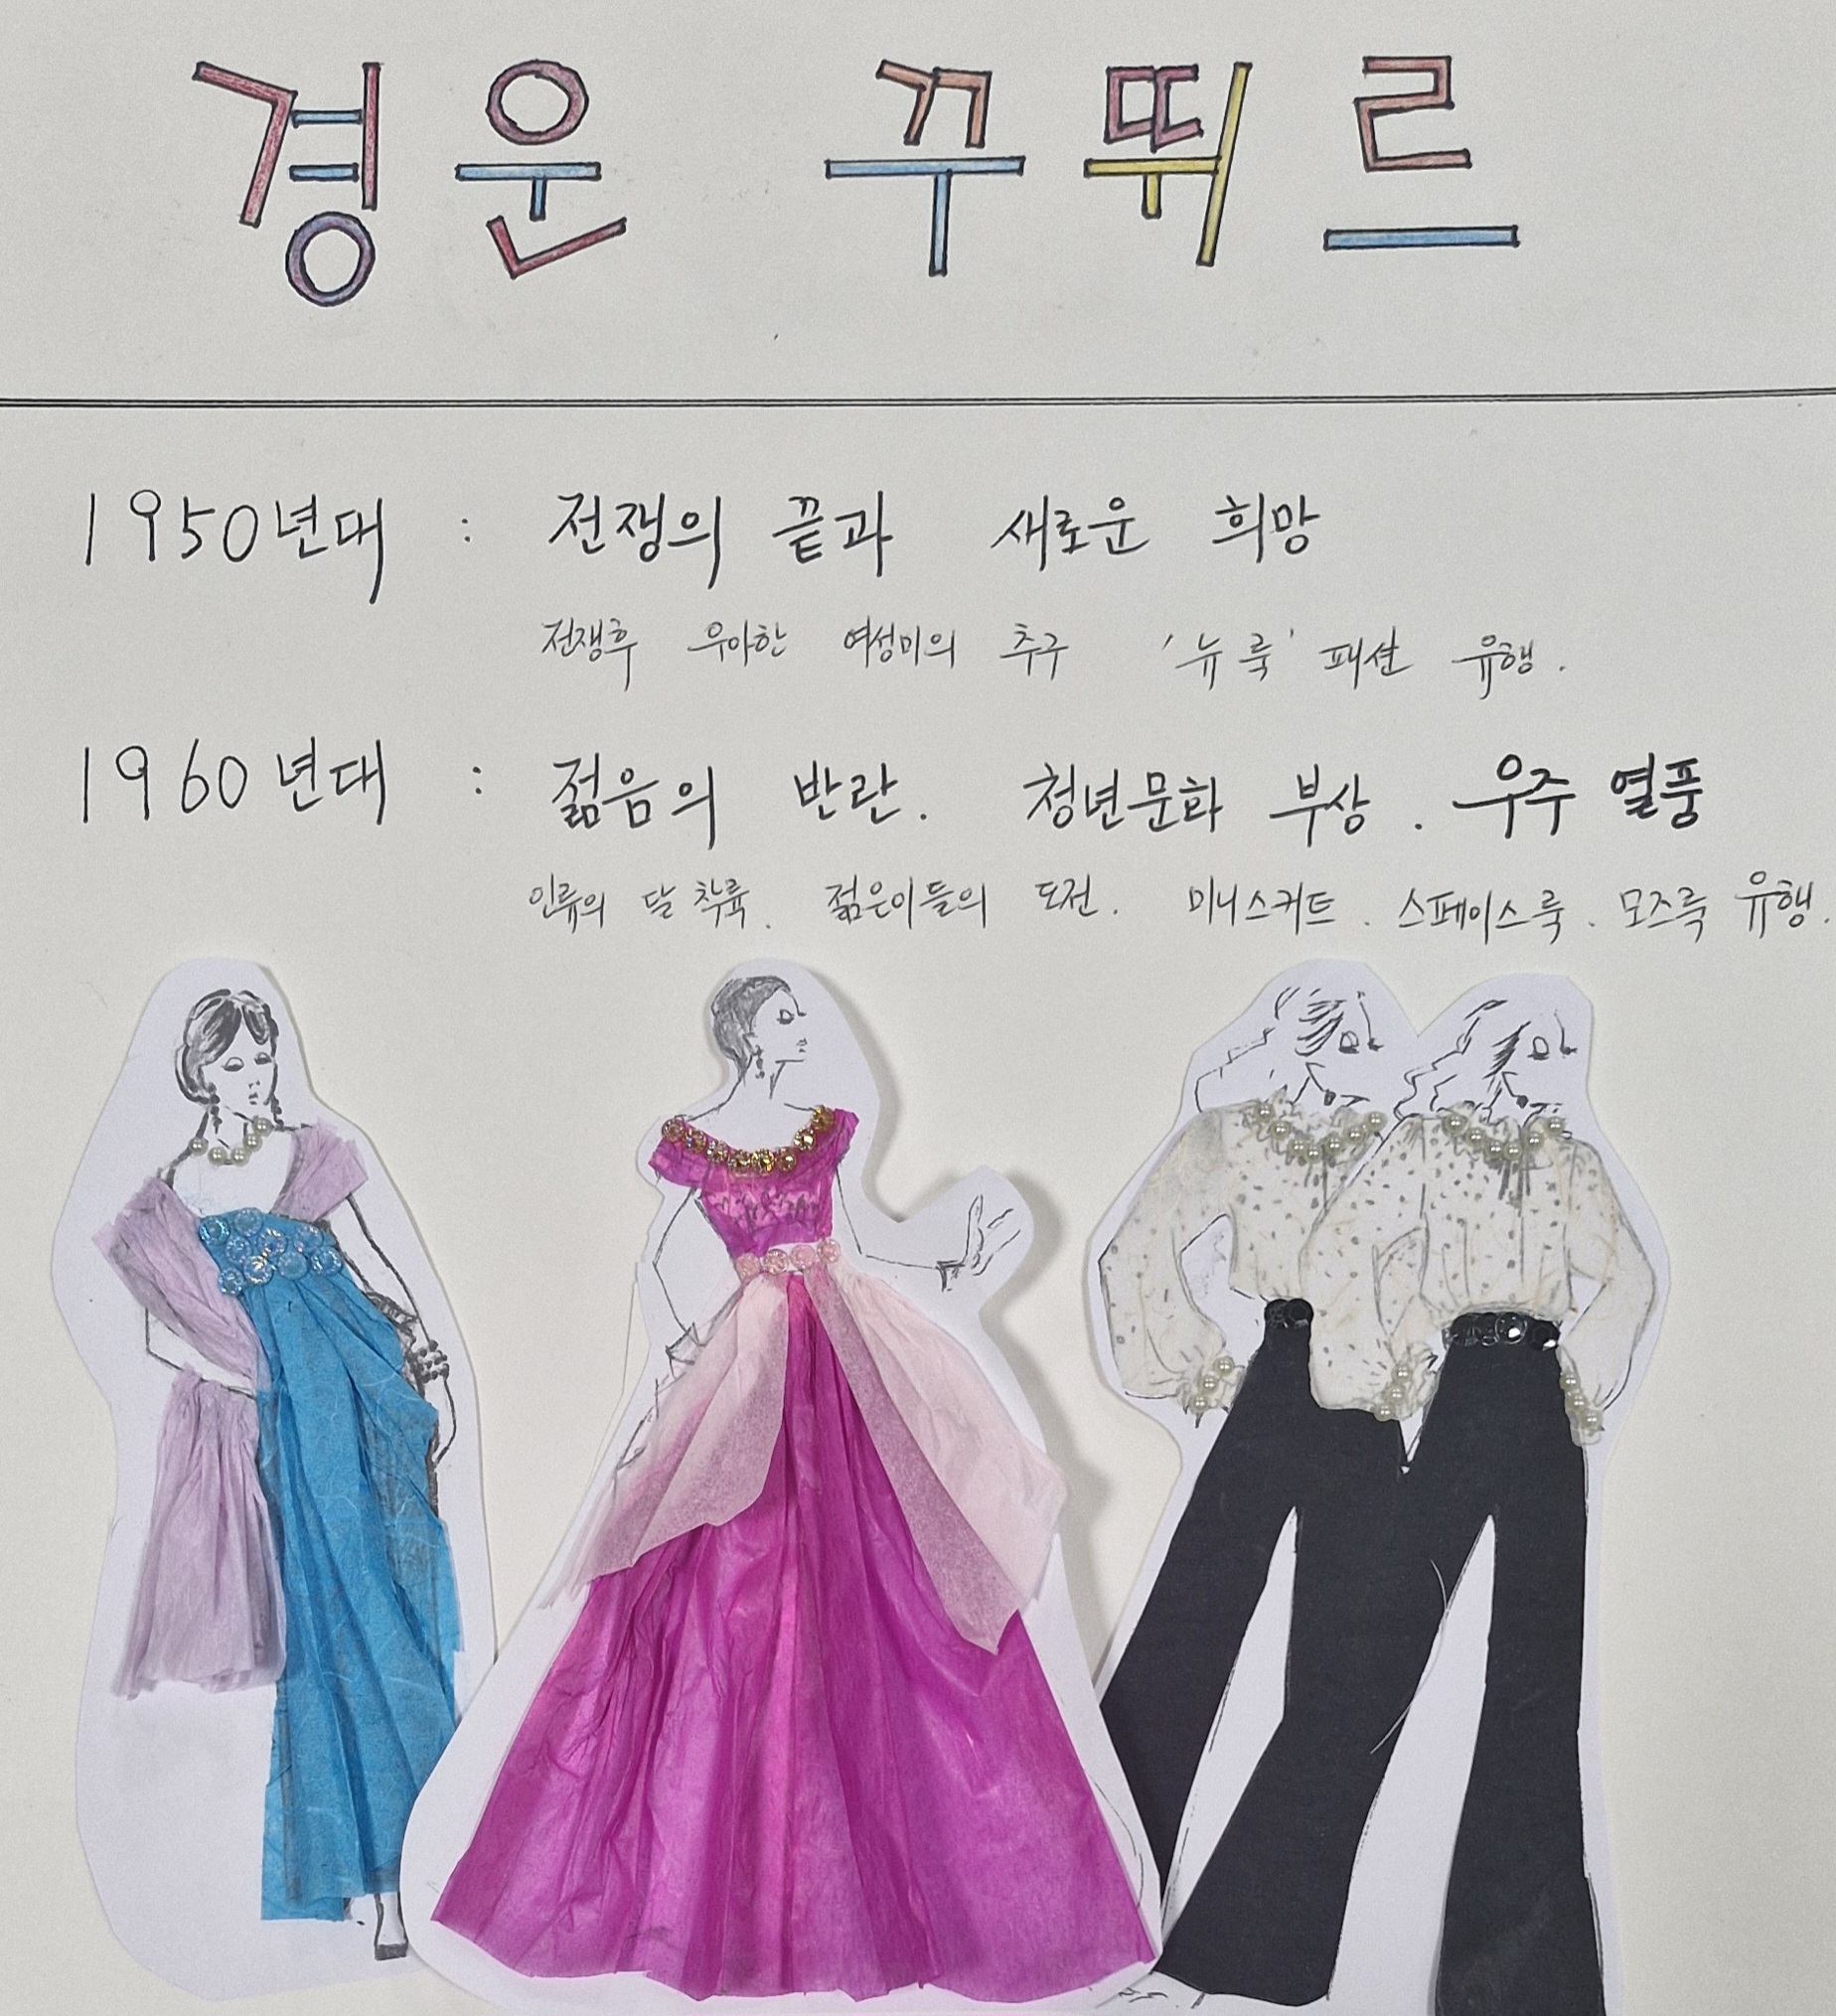 경운 꾸뛰르
1950년대 : 전쟁의 끝과 새로운 희망
전쟁후 우아한 여성미의 추구 '뉴룩' 패션 유행.
1960년대 : 젊음의 반란. 청년문화 부상. 우주 열풍
인류의 달 착륙. 젊은이들의 도전. 미니스커트. 스페이스룩. 모즈룩 유행.